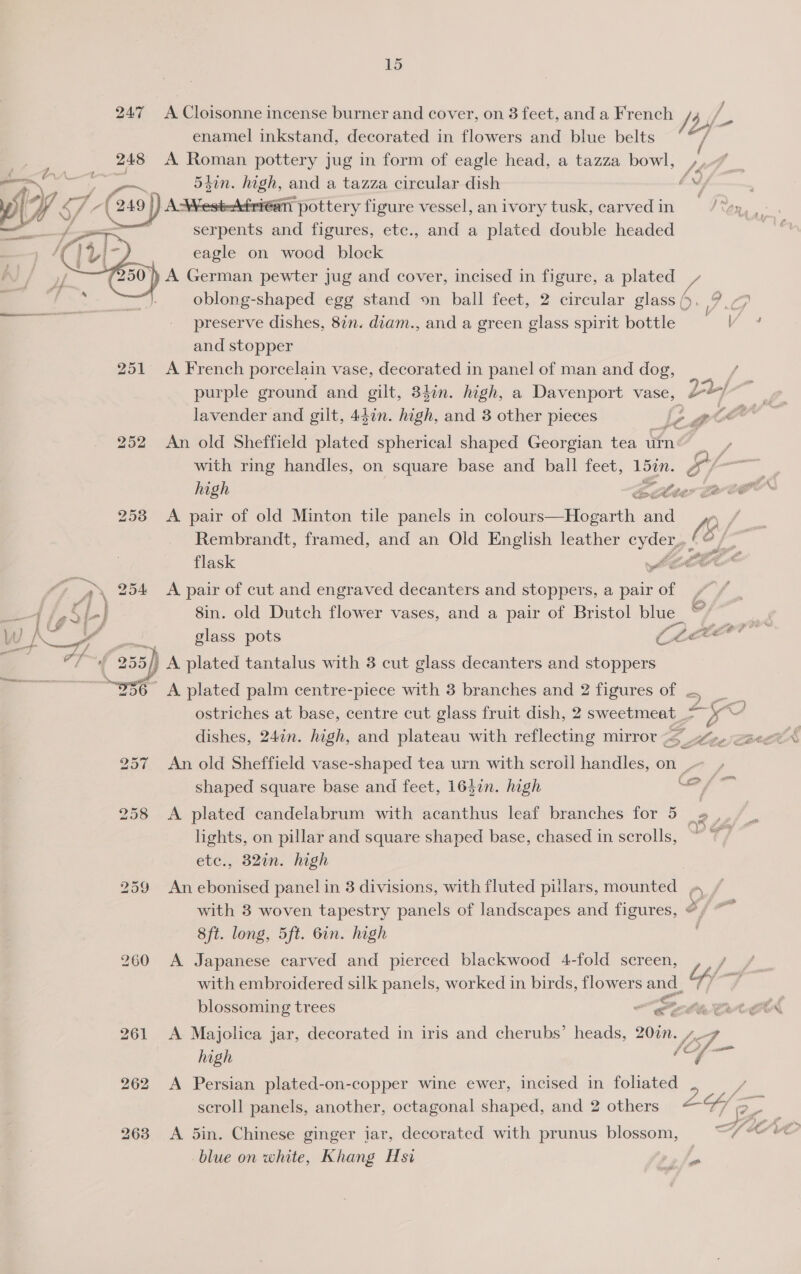 15
247 A Cloisonne incense burner and cover, on 3 feet, and a French
enamel inkstand, decorated in flowers and blue belts
248 A Roman pottery jug in form of eagle head, a tazza bowl,
5½in. high, and a tazza circular dish
249 A West African pottery figure vessel, an ivory tusk, carved in
serpents and figures, etc., and a plated double headed
eagle on wood block
250 A German pewter jug and cover, incised in figure, a plated
oblong-shaped egg stand on ball feet, 2 circular glass
preserve dishes, 8in. diam., and a green glass spirit bottle
and stopper
251 A French porcelain vase, decorated in panel of man and dog,
purple ground and gilt, 3½in. high, a Davenport vase,
lavender and gilt, 4½in. high, and 3 other pieces
252 An old Sheffield plated spherical shaped Georgian tea urn
with ring handles, on square base and ball feet, 15in.
high
253 A pair of old Minton tile panels in colours—Hogarth and
Rembrandt, framed, and an Old English leather cyder
flask
254 A pair of cut and engraved decanters and stoppers, a pair of
8in. old Dutch flower vases, and a pair of Bristol blue
glass pots
255 A plated tantalus with 3 cut glass decanters and stoppers
256 A plated palm centre-piece with 3 branches and 2 figures of
ostriches at base, centre cut glass fruit dish, 2 sweetmeat
dishes, 24in. high, and plateau with reflecting mirror
257 An old Sheffield vase-shaped tea urn with scroll handles, on
shaped square base and feet, 16½in. high
258 A plated candelabrum with acanthus leaf branches for 5
lights, on pillar and square shaped base, chased in scrolls,
etc., 32in. high
259 An ebonised panel in 3 divisions, with fluted pillars, mounted
with 3 woven tapestry panels of landscapes and figures,
8ft. long, 5ft. 6in. high
260 A Japanese carved and pierced blackwood 4-fold screen,
with embroidered silk panels, worked in birds, flowers and
blossoming trees
261 A Majolica jar, decorated in iris and cherubs' heads, 20in.
high
262 A Persian plated-on-copper wine ewer, incised in foliated
scroll panels, another, octagonal shaped, and 2 others
263 A 5in. Chinese ginger jar, decorated with prunus blossom,
blue on white, Khang Hsi